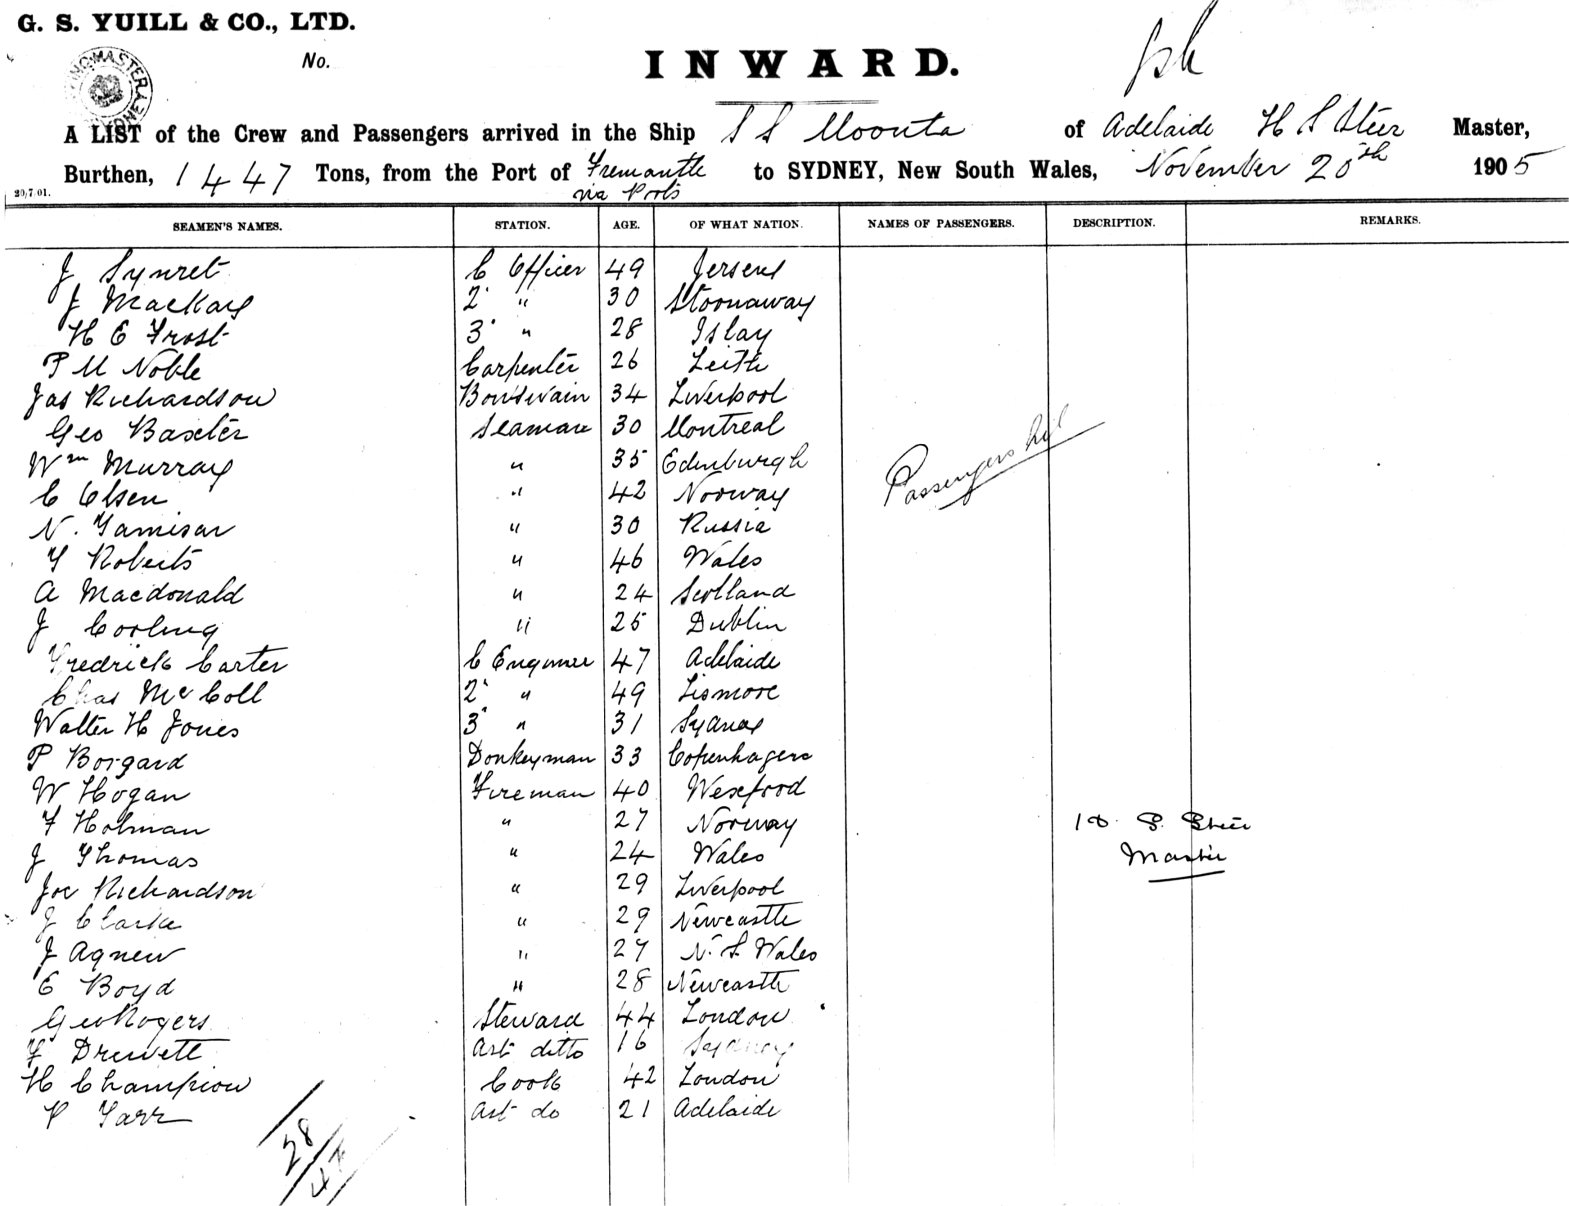 G. S. YUILL & CO., LTD.
No.
INWARD.
A LIST of the Crew and Passengers arrived in the Ship S S Moonta of Adelaide H S Steer Master,
Burthen, 1447 Tons, from the Port of Fremantle via Ports to SYDNEY, New South Wales, November 20th 1905
20/7.01.
SEAMEN'S NAMES. STATION. AGE. OF WHAT NATION. NAMES OF PASSENGERS. DESCRIPTION. REMARKS.
J Synret C Officer 49 Jersey
J Mackay 2 " 30 Stornaway
H E Frost 3 " 28 Islay
P M Noble Carpenter 26 Leith
Jas Richardson Boatswain 34 Liverpool
Geo Baxter Seaman 30 Montreal
Wm Murray " 35 Edinburgh
Passengers Nil
C Olsen " 42 Norway
N. " 30 Russia
T Roberts " 46 Wales
A Macdonald " 24 Scotland
J " 25 Dublin
Fredrick Carter C Engineer 47 Adelaide
Chas McColl 2 " 49 Lismore
Walter H Jones 3 " 31 Sydney
P Borgard Donkeyman 33 Copenhagen
W Hogan Fireman 40 Wexford
F Holman " 27 Norway
H. S. Steer
J Thomas " 24 Wales
Master
Joe Richardson " 29 Liverpool
J Clarke " 29 Newcastle
J Agnew " 27 N. S. Wales
E Boyd " 28 Newcastle
Geo Rogers Steward 44 London
F Drewett Ast ditto 16 Sydney
H Champion Cook 42 London
P Tarr Ast do 21 Adelaide
28
47